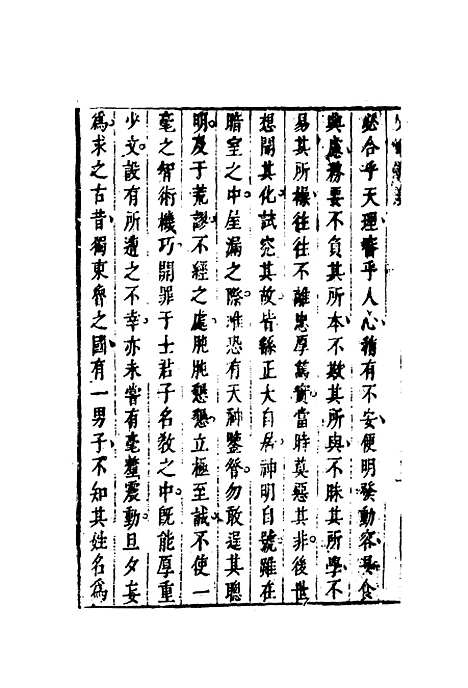 必合乎天理審乎人心稍有不安便明發動容寢食
與處務要不負其所本不欺其所與不眛其所學不
易其所操往往不離忠厚篤實當時莫惡其非後世
想聞其化試究其故皆繇正大自矢神明自號雖在
暗室之中屋漏之際惟恐有天神鑒督勿敢逞其聰
明及于荒謬不經之處肫肫懇懇立極至誠不使一
毫之智術機巧開罪于士君子名教之中既能厚重
少文設有所遭之不幸亦未嘗有毫釐震動旦夕妄
為求之古昔獨東魯之國有一男子不知其姓名為